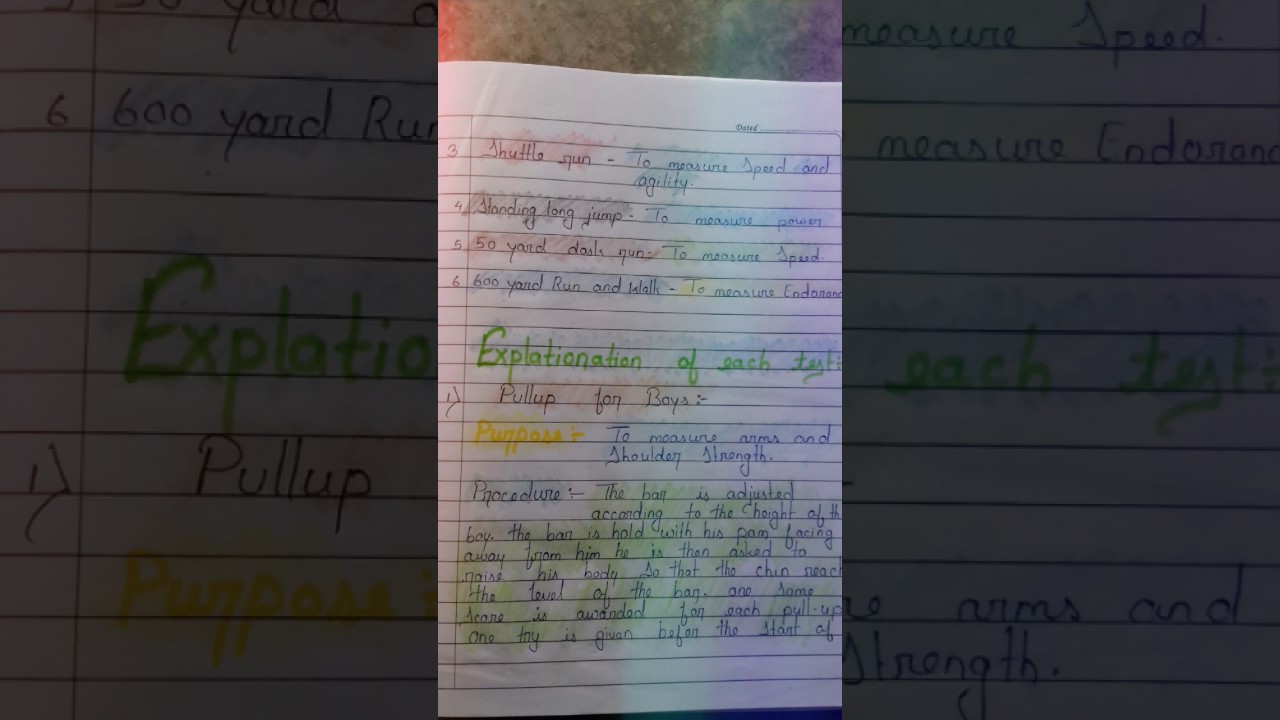 Dated
3 Shuttle run - To measure Speed and
agility.
4 Standing long jump - To measure power
5 50 yard dash run:- To measure Speed.
6 600 yard Run and Walk - To measure Enduran
Explationation of each test:
1) Pullup for Boys:-
Purpose:- To measure arms and
Shoulder Strength.
Procedure:- The bar is adjusted
according to the height of th
boy. the bar is hold with his pam facing
away from him he is then asked to
raise his body so that the chin reach
the level of the bar. one same
score is awarded for each pull-up
one try is given befor the start of